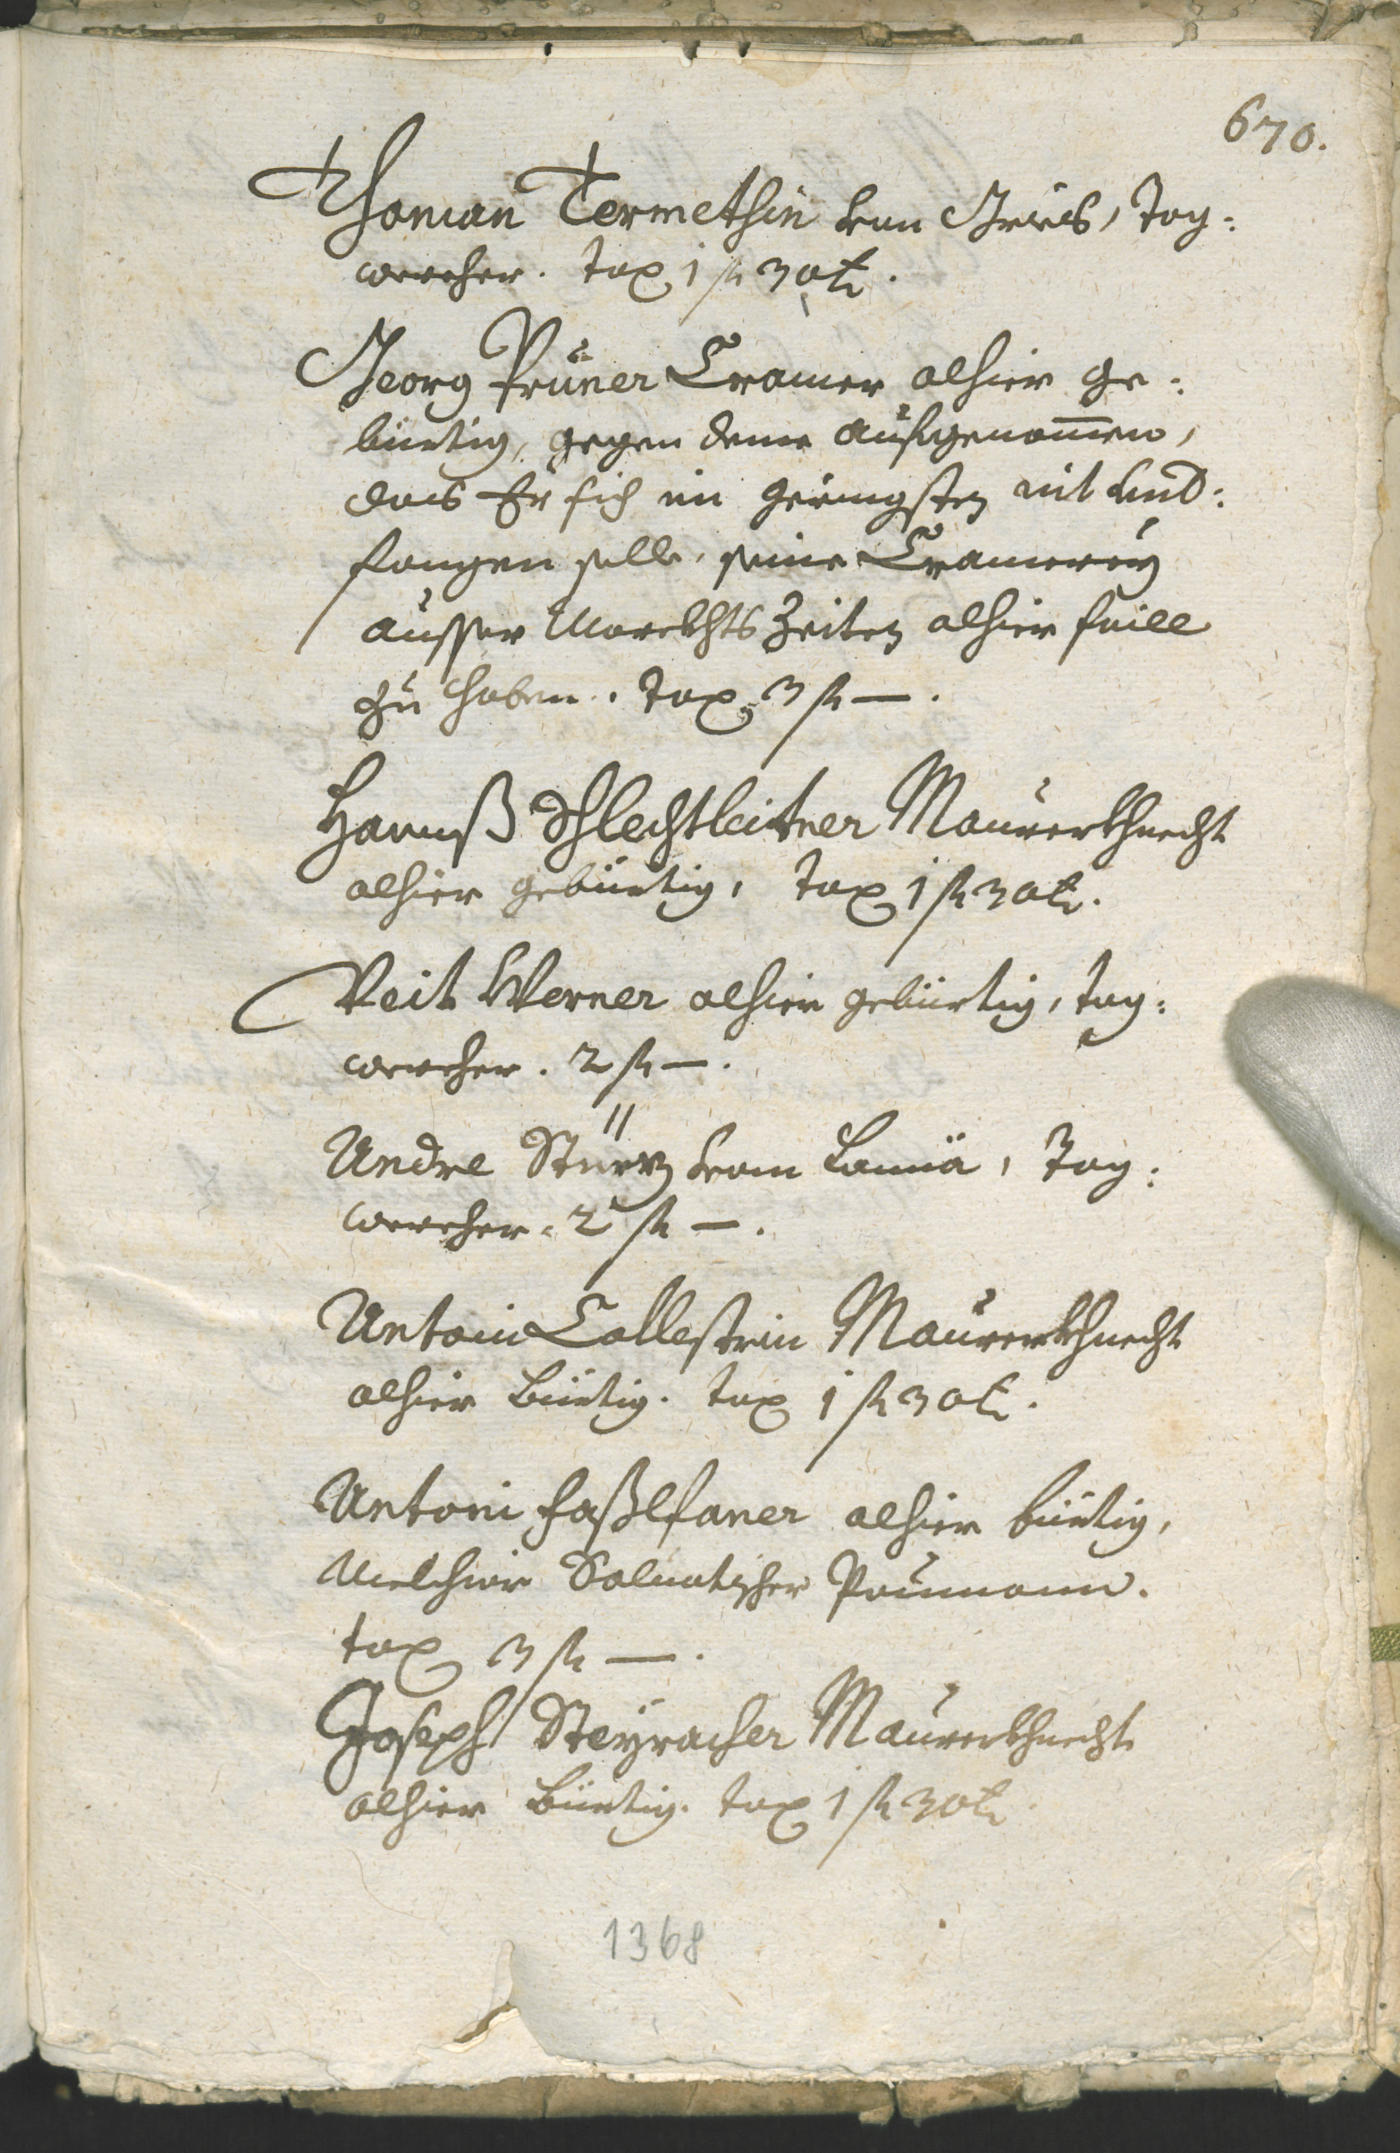 670.
Thoman Termethin von Gries, Tag:
wercher. tax 1 fl 30 k.
Georg Pruner Cramer alhier ge:
bürtig, gegen deme aufgenomen,
das Er sich im geringsten nit undt:
fangen solle, seine Cramerey
ausser Marckhts Zeiten alhier faill
zu haben. tax 3 fl —.
Hannß Schlechtleitner Maurerkhnecht
alhier gebürtig, tax 1 fl 30 k.
Veit Werner alhier gebürtig, tag:
wercher. 2 fl —.
Andre Sturz vom Lannä, Tag:
wercher. 2 fl —.
Antoni Callestrin Maurerkhnecht
alhier bürtig. tax 1 fl 30 k.
Antoni Faßlfaner alhier bürtig,
Melchior Paumann.
tax 3 fl —.
Joseph Steyracher Maurerkhnecht
alhier bürtig. tax 1 fl 30 k
1368